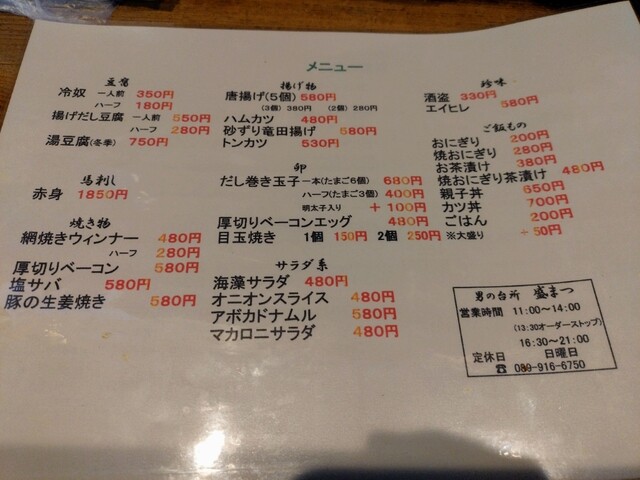 メニュー
豆腐
冷奴 一人前 350円
ハーフ 180円
揚げだし豆腐 一人前 550円
ハーフ 280円
湯豆腐(冬季) 750円
馬刺し
赤身 1850円
焼き物
網焼きウィンナー 480円
ハーフ 280円
厚切りベーコン 580円
塩サバ 580円
豚の生姜焼き 580円
揚げ物
唐揚げ(5個) 580円
(3個) 380円 (2個) 280円
ハムカツ 480円
砂ずり竜田揚げ 580円
トンカツ 530円
卵
だし巻き玉子 一本(たまご6個) 680円
ハーフ(たまご3個) 400円
明太子入り +100円
厚切りベーコンエッグ 480円
目玉焼き 1個 150円 2個 250円
サラダ系
海藻サラダ 480円
オニオンスライス 480円
アボカドナムル 580円
マカロニサラダ 480円
珍味
酒盗 330円
エイヒレ 580円
ご飯もの
おにぎり 200円
焼おにぎり 280円
お茶漬け 380円
焼おにぎり茶漬け 480円
親子丼 650円
カツ丼 700円
ごはん 200円
※大盛り +50円
男の台所 盛まつ
営業時間 11:00〜14:00
(13:30オーダーストップ)
16:30〜21:00
定休日 日曜日
☎ 089-916-6750